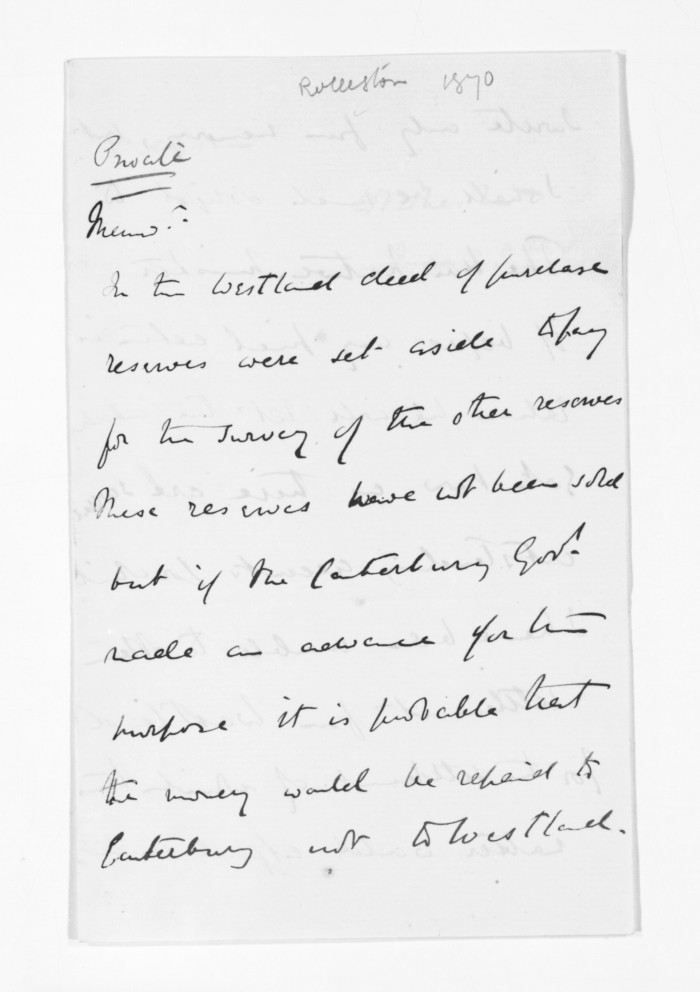 Rolleston 1870
Private
Memo.
In the Westland deed of purchase
reserves were set aside to pay
for the survey of the other reserves
These reserves have not been sold
but if the Canterbury Govt
made an advance for this
purpose it is probable that
the money would be repaid to
Canterbury not to Westland.